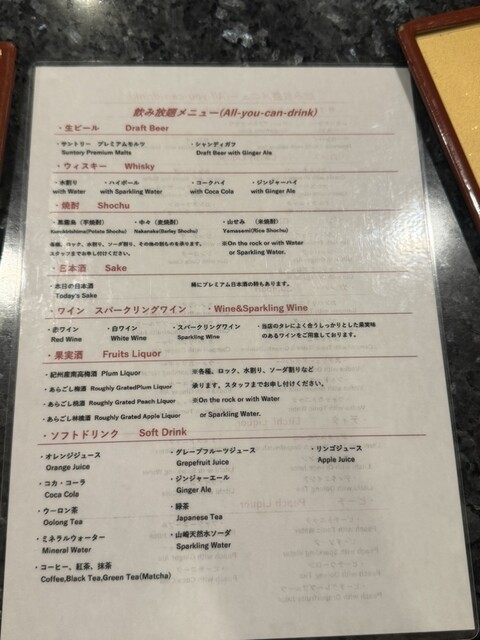 飲み放題メニュー(All-you-can-drink)
・生ビール Draft Beer
・サントリー プレミアムモルツ ・シャンディガフ
Suntory Premium Malts Draft Beer with Ginger Ale
・ウィスキー Whisky
・水割り ・ハイボール ・コークハイ ・ジンジャーハイ
with Water with Sparkling Water with Coca Cola with Ginger Ale
・焼酎 Shochu
・黒霧島（芋焼酎） ・中々（麦焼酎） ・山せみ （米焼酎）
Kurokirishima(Potato Shochu) Nakanaka(Barley Shochu) Yamasemi(Rice Shochu)
各種、ロック、水割り、ソーダ割り、その他の割ものを承ります。 ※On the rock or with Water
スタッフまでお申し付けください。 or Sparkling Water.
・日本酒 Sake
・本日の日本酒 稀にプレミアム日本酒の時もあります。
Today's Sake
・ワイン スパークリングワイン ・Wine&Sparkling Wine
・赤ワイン ・白ワイン ・スパークリングワイン ・当店のタレによく合うしっかりとした果実味
Red Wine White Wine Sparkling Wine のあるワインをご用意しております。
・果実酒 Fruits Liquor
・紀州産南高梅酒 Plum Liquor ※各種、ロック、水割り、ソーダ割りなど
・あらごし梅酒 Roughly GratedPlum Liquor 承ります。スタッフまでお申し付けください。
・あらごし桃酒 Roughly Grated Peach Liquor ※On the rock or with Water
・あらごし林檎酒 Roughly Grated Apple Liquor or Sparkling Water.
・ソフトドリンク Soft Drink
・オレンジジュース ・グレープフルーツジュース ・リンゴジュース
Orange Juice Grepefruit Juice Apple Juice
・コカ・コーラ ・ジンジャーエール
Coca Cola Ginger Ale
・ウーロン茶 ・緑茶
Oolong Tea Japanese Tea
・ミネラルウォーター ・山崎天然水ソーダ
Mineral Water Sparkling Water
・コーヒー、紅茶、抹茶
Coffee,Black Tea,Green Tea(Matcha)